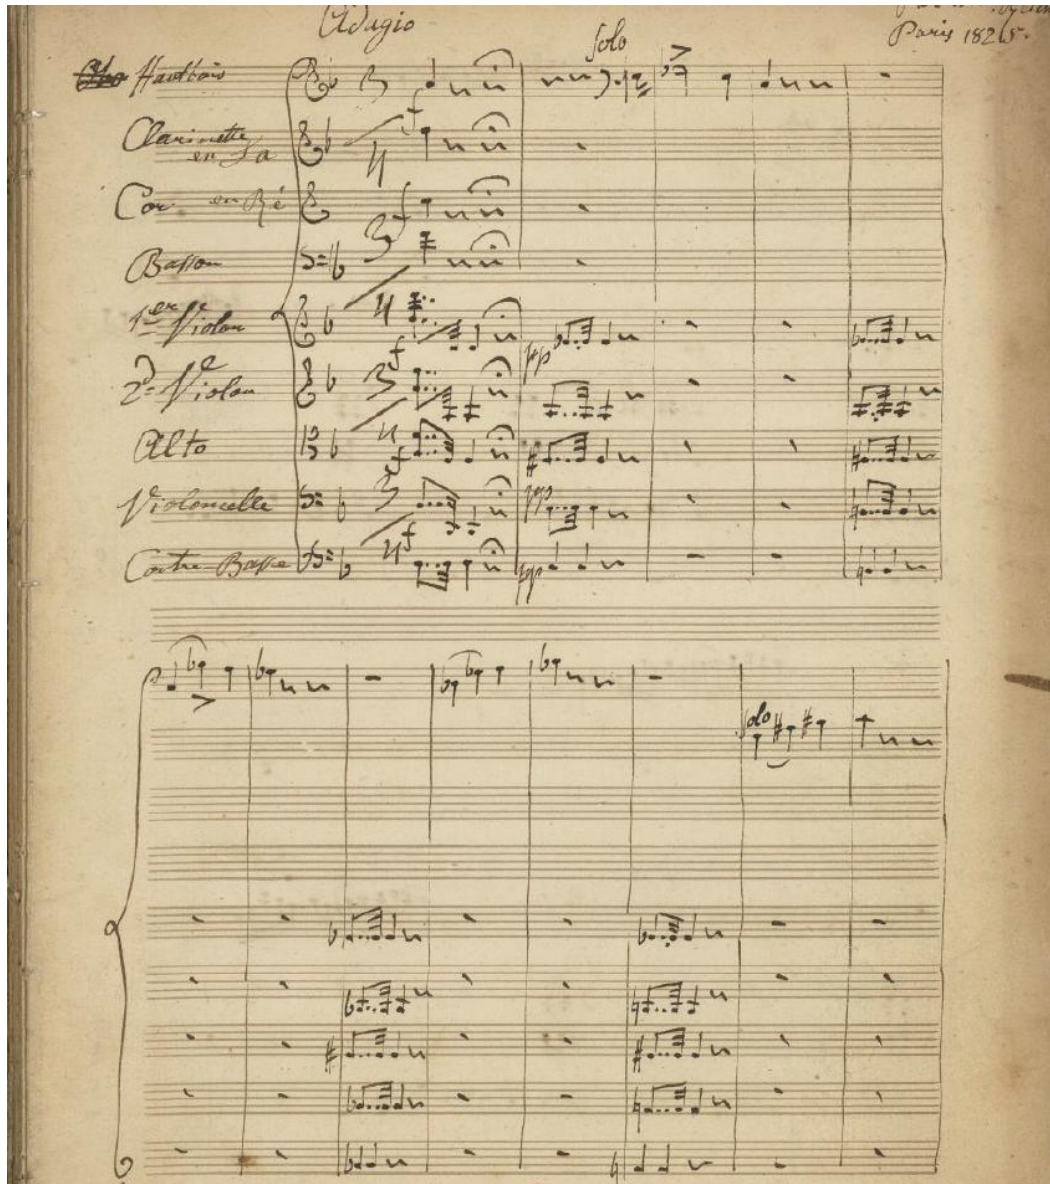 Adagio
Paris 1825.
Solo
Hautbois
Clarinette
en La
Cor en Ré
Basson
1er Violon
2d Violon
Alto
Violoncelle
Contre-Basse
3 4
3 4
3 4
3 4
f
f
f
f
f
f
pp
pp
pp
Solo